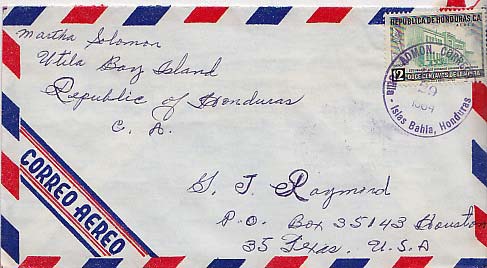 Martha Solomon
Utila Bay Island
Republic of Honduras
C. A.
REPUBLICA DE HONDURAS C.A.
AEREO
12 DOCE CENTAVOS DE LEMPIRA
ADMON. CORREOS
Utila - Islas Bahia, Honduras
CORREO AEREO
G. T. Raymond
P.O. Box 35143 Houston
35 Texas. U.S.A